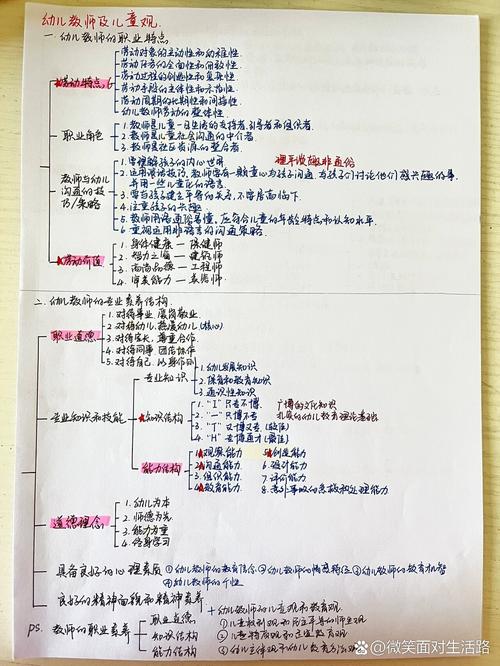 幼儿教师及儿童观
一. 幼儿教师的职业特点
劳动对象的主动性和幼稚性
劳动任务的全面性和细致性
★劳动特点 6
劳动过程的创造性和复杂性
劳动手段的主体性和示范性
劳动周期的长期性和间接性
幼儿教师劳动的整体性
职业角色
1. 教师是儿童一日生活的支持者,引导者和组织者
2. 教师是儿童社会沟通的中介者
3. 教师是社区资源的整合者
教师与幼儿沟通的技巧/策略
1. 要理解孩子的内心世界
理平谈趣非通俗
2. 运用谈话技巧,教师要有一颗童心与孩子沟通,与孩子们讨论他们感兴趣的事,
并用一些儿童化的语言
3. 要与孩子建立平等的关系,不要居高临下
4. 注重孩子的兴趣
5. 教师用语通俗易懂,应符合儿童的年龄特点和认知水平
6. 重视运用非语言的沟通策略
★劳动价值
1. 身体健康 — 保健师
2. 智力之源 — 建筑师
3. 高尚品德 — 工程师
4. 审美能力 — 美容师
二. 幼儿教师的专业素养结构
职业道德
1. 对待事业,爱岗敬业
2. 对待幼儿,热爱幼儿(核心)
3. 对待家长,尊重合作
4. 对待同事 团结协作
5. 对待自己 以身作则
专业知识和技能
专业知识
1. 幼儿发展知识
2. 保育和教育知识
3. 通识性知识
★知识结构
1. "I" 只专不博
广博的文化知识
2. "一" 只博不专
扎实的幼儿教育理论基础
3. "T" 又博又专(较佳)
4. "H" 专博通才(最佳)
能力结构
1. 观察能力
★5. 创造能力
★2. 沟通能力
6. 设计能力
3. 组织能力
7. 评价能力
★4. 教育能力
8. 意外事故的急救和处理能力
道德理念
1. 幼儿为本
2. 师德为先
3. 能力为重
4. 终身学习
具备良好的心理素质 ①幼儿教师的教育信念 ②幼儿教师的情感特征 ③幼儿教师的教育机智
④幼儿教师的个性
良好的精神面貌和精神素养
ps.
教师的职业素养
职业道德
知识结构
能力结构
+ 幼儿教师的儿童观和教育观